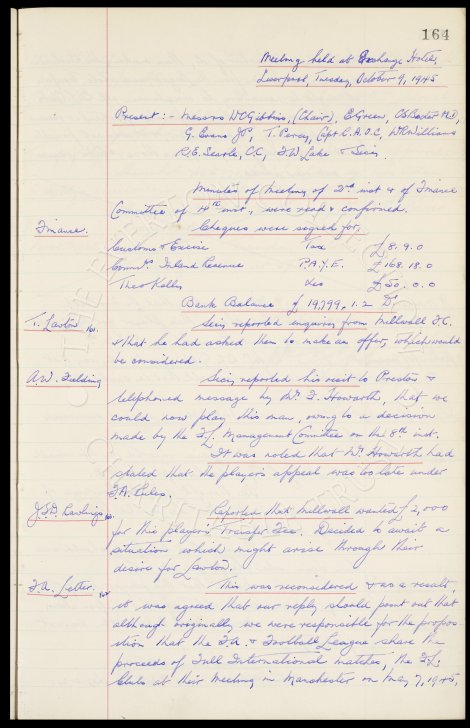 164
Meeting held at Exchange Hotel,
Liverpool, Tuesday, October 9, 1945
Present:- Messrs W.C. Gibbins, (Chair), E. Green, C.S. Baxter M.D,
G. Evans J.P, T. Percy, Capt. C.A.O.C, W.R. Williams
R.E. Searle, C.C, F.W. Lake & Secy.
Minutes of Meeting of 2nd inst & of Finance
Committee of 4th inst., were read & confirmed.
Finance. Cheques were signed for,
Customs & Excise Tax £8. 9. 0
Commrs Inland Revenue P.A.Y.E. £168. 18. 0
Theo Kelly £50. 0. 0
Bank Balance £19,799. 1. 2 Dr
T. Lawton Secy reported enquiry from Millwall F.C.
& that he had asked them to make an offer, which would
be considered.
A.W. Fielding Secy reported his visit to Preston &
telephoned message by Mr F. Howarth, that we
could now play this man, owing to a decision
made by the F.L. Management Committee on the 8th inst.
It was noted that Mr Howarth had
stated that the players appeal was too late under
F.A. Rules.
J.S.D. Rawlings Reported that Millwall wanted £2,000
for this player's Transfer Fee. Decided to await a
situation which might arise through their
desire for Lawton.
F.A. Letter. This was reconsidered & as a result,
it was agreed that our reply should point out that
although originally we were responsible for the propos-
ition that the F.A. & Football League share the
proceeds of Full International matches, the F.L.
Clubs at their Meeting in Manchester on May 7, 1945,